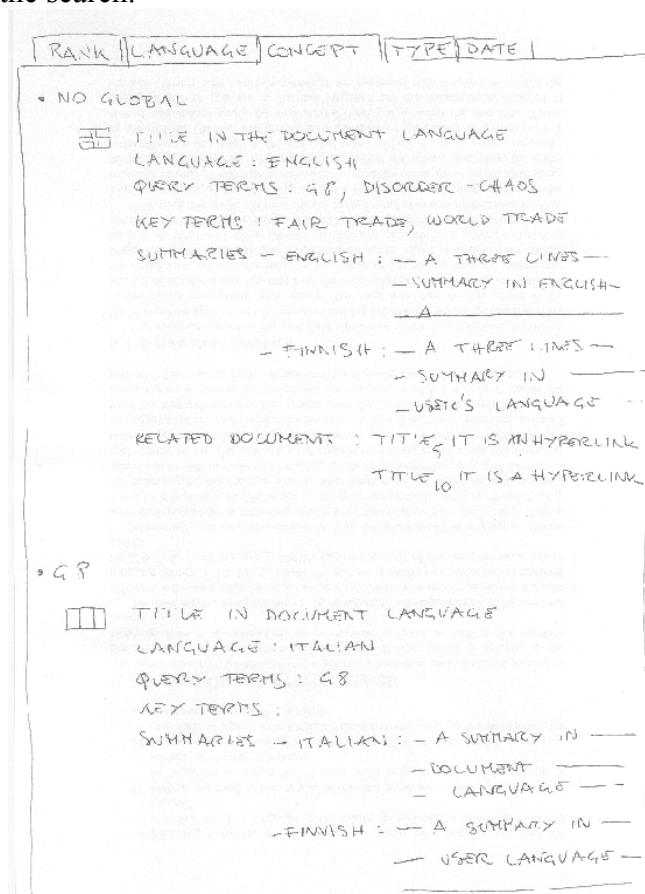 the search.
RANK LANGUAGE CONCEPT TYPE DATE
• NO GLOBAL
TITLE IN THE DOCUMENT LANGUAGE
LANGUAGE : ENGLISH
QUERY TERMS : G8, DISORDER - CHAOS
KEY TERMS : FAIR TRADE, WORLD TRADE
SUMMARIES - ENGLISH : — A THREE LINES —
— SUMMARY IN ENGLISH —
— A —
- FINNISH : — A THREE LINES —
— SUMMARY IN —
— USER'S LANGUAGE
RELATED DOCUMENTS : TITLE5 IT IS AN HYPERLINK
TITLE10 IT IS A HYPERLINK
• G8
TITLE IN DOCUMENT LANGUAGE
LANGUAGE : ITALIAN
QUERY TERMS : G8
KEY TERMS :
SUMMARIES - ITALIAN : — A SUMMARY IN —
— DOCUMENT —
— LANGUAGE —
- FINNISH : — A SUMMARY IN —
— USER LANGUAGE —